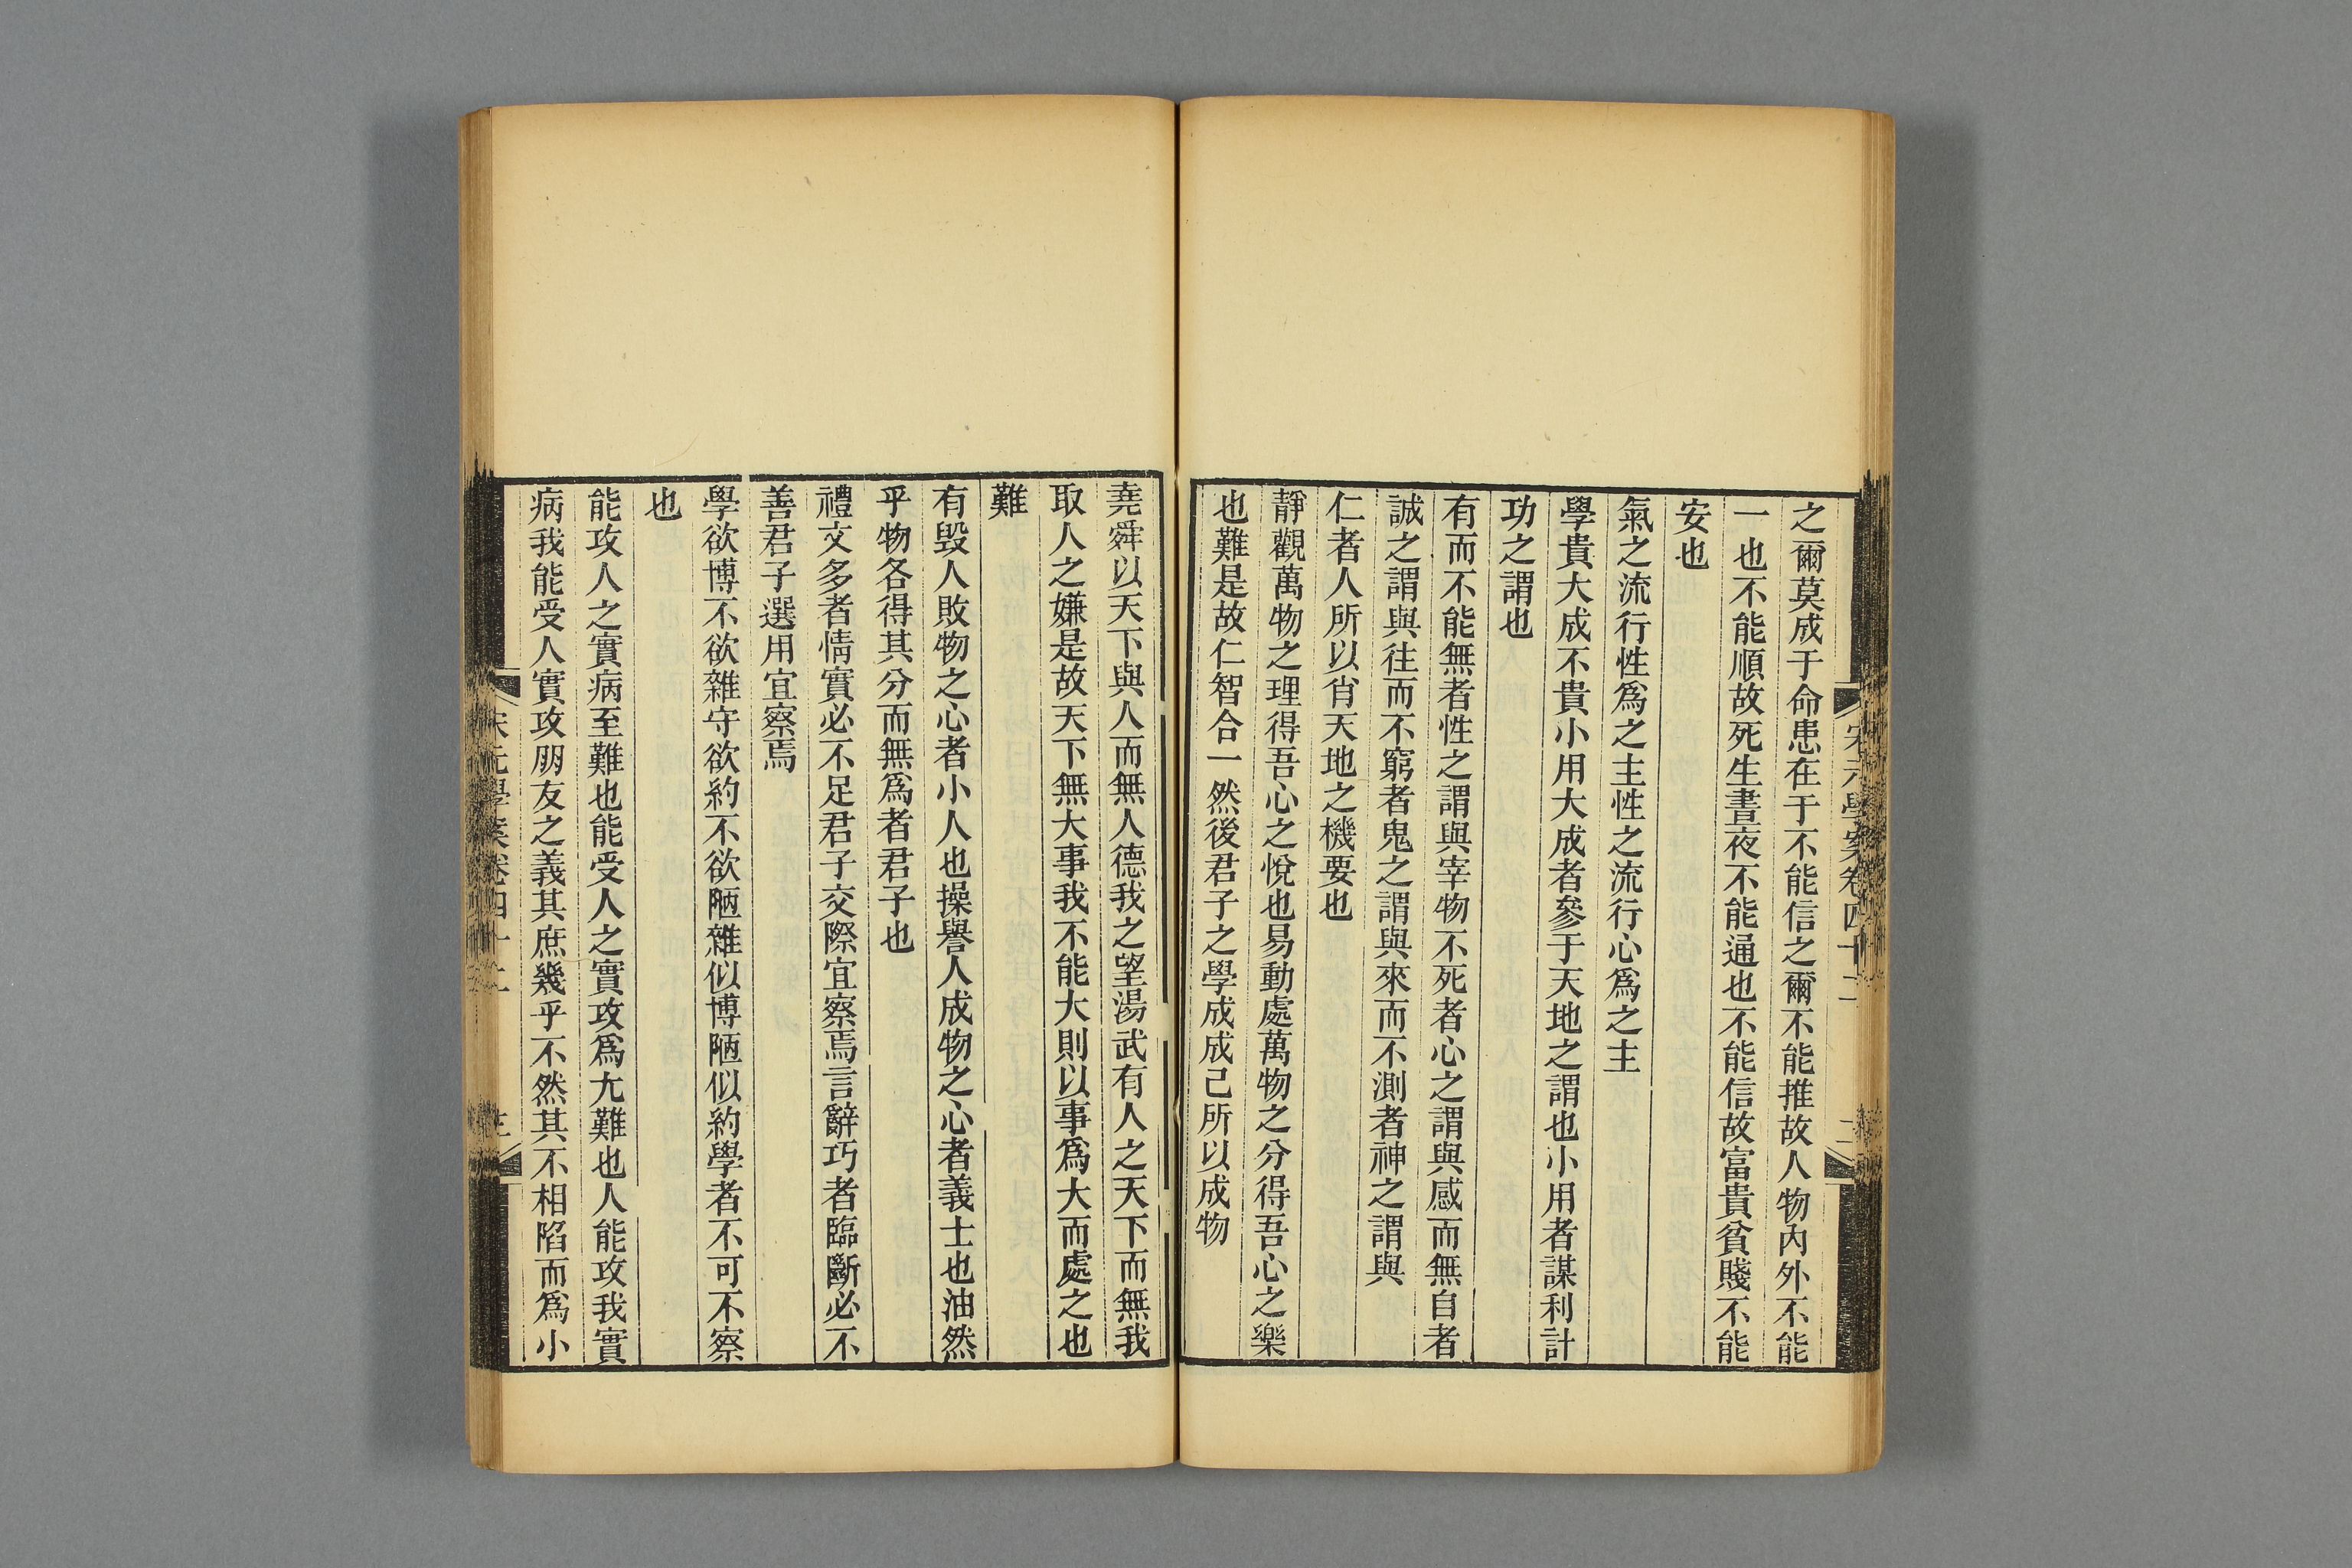 之爾莫成于命患在于不能信之爾不能推故人物內外不能
一也不能順故死生晝夜不能通也不能信故富貴貧賤不能
安也
氣之流行性爲之主性之流行心爲之主
學貴大成不貴小用大成者參于天地之謂也小用者謀利計
功之謂也
有而不能無者性之謂與宰物不死者心之謂與感而無自者
誠之謂與往而不窮者鬼之謂與來而不測者神之謂與
仁者人所以肖天地之機要也
靜觀萬物之理得吾心之悅也易動處萬物之分得吾心之樂
也難是故仁智合一然後君子之學成成己所以成物
堯舜以天下與人而無人德我之望湯武有人之天下而無我
取人之嫌是故天下無大事我不能大則以事爲大而處之也
難
有毀人敗物之心者小人也操譽人成物之心者義士也油然
乎物各得其分而無爲者君子也
禮文多者情實必不足君子交際宜察焉言辭巧者臨斷必不
善君子選用宜察焉
學欲博不欲雜守欲約不欲陋雜似博陋似約學者不可不察
也
能攻人之實病至難也能受人之實攻爲尤難也人能攻我實
病我能受人實攻朋友之義其庶幾乎不然其不相陷而爲小
宋元學案卷四十二